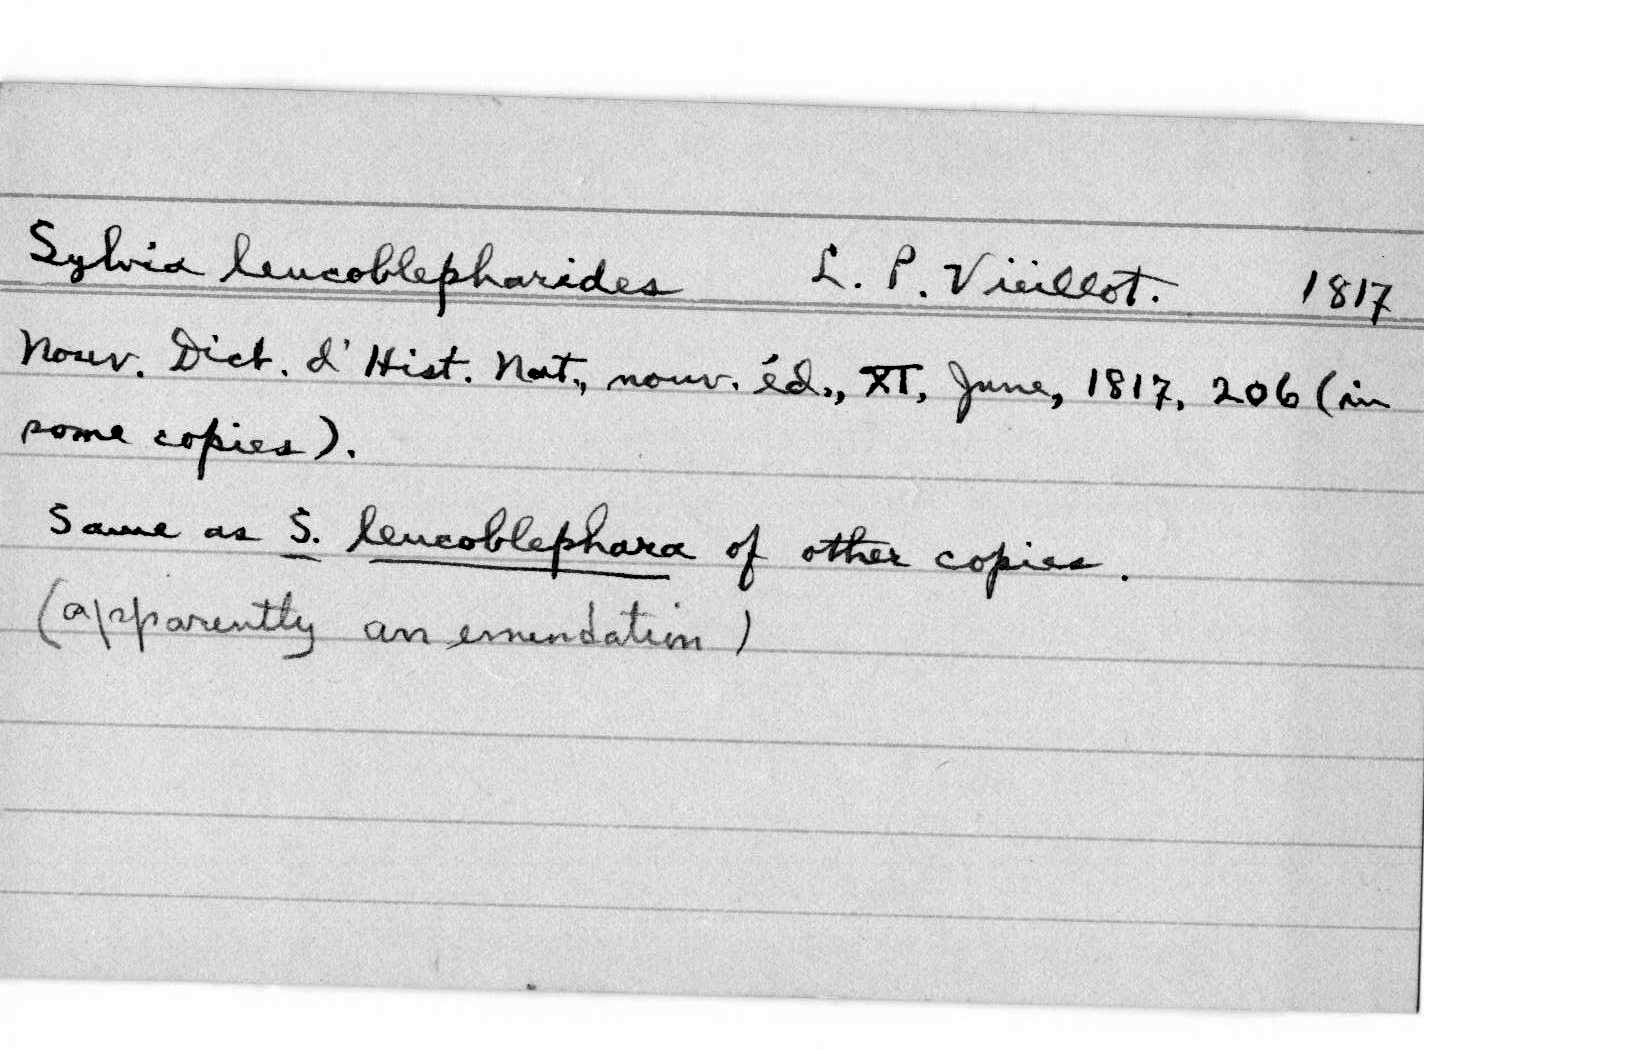 Sylvia leucoblepharides L. P. Vieillot. 1817
Nouv. Dict. d'Hist. Nat., nouv. éd., XI, June, 1817, 206 (in
some copies).
Same as S. leucoblephara of other copies.
(apparently an emendation)